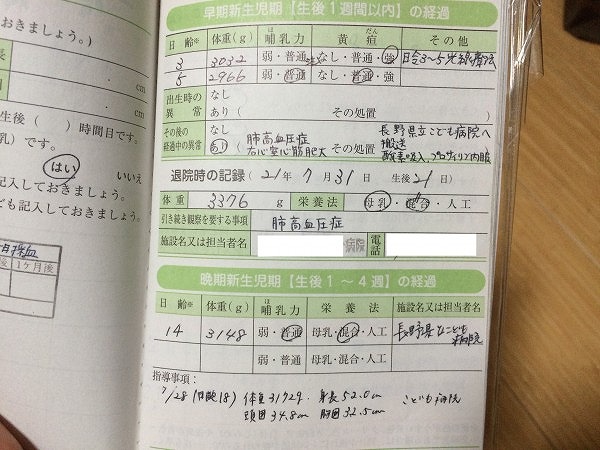 おきましょう。)
長
cm
生後( )時間目です。
乳)です。
はい いいえ
記入しておきましょう。
ども記入しておきましょう。
後 1ヶ月後
早期新生児期【生後1週間以内】の経過
日齢※ 体重(g) 哺乳力 黄疸 その他
3 3032 弱・普通 なし・普通・強 日令3~5光線療法
5 2966 弱・普通 なし・普通・強
出生時の異常 なし
あり( その処置 )
その後の経過中の異常 なし 肺高血圧症 長野県立こども病院へ
あり( 右心室心筋肥大 その処置 搬送
酸素吸入、 内服
退院時の記録(21年7月31日 生後21日)
体重 3376 g 栄養法 母乳・混合・人工
引き続き観察を要する事項 肺高血圧症
施設名又は担当者名 病院 電話
晩期新生児期【生後1~4週】の経過
日齢※ 体重(g) 哺乳力 栄養法 施設名又は担当者名
14 3148 弱・普通 母乳・混合・人工 長野県立こども病院
弱・普通 母乳・混合・人工
指導事項:
7/28(日齢18) 体重3172g 身長52.0cm こども病院
頭囲34.8cm 胸囲32.5cm